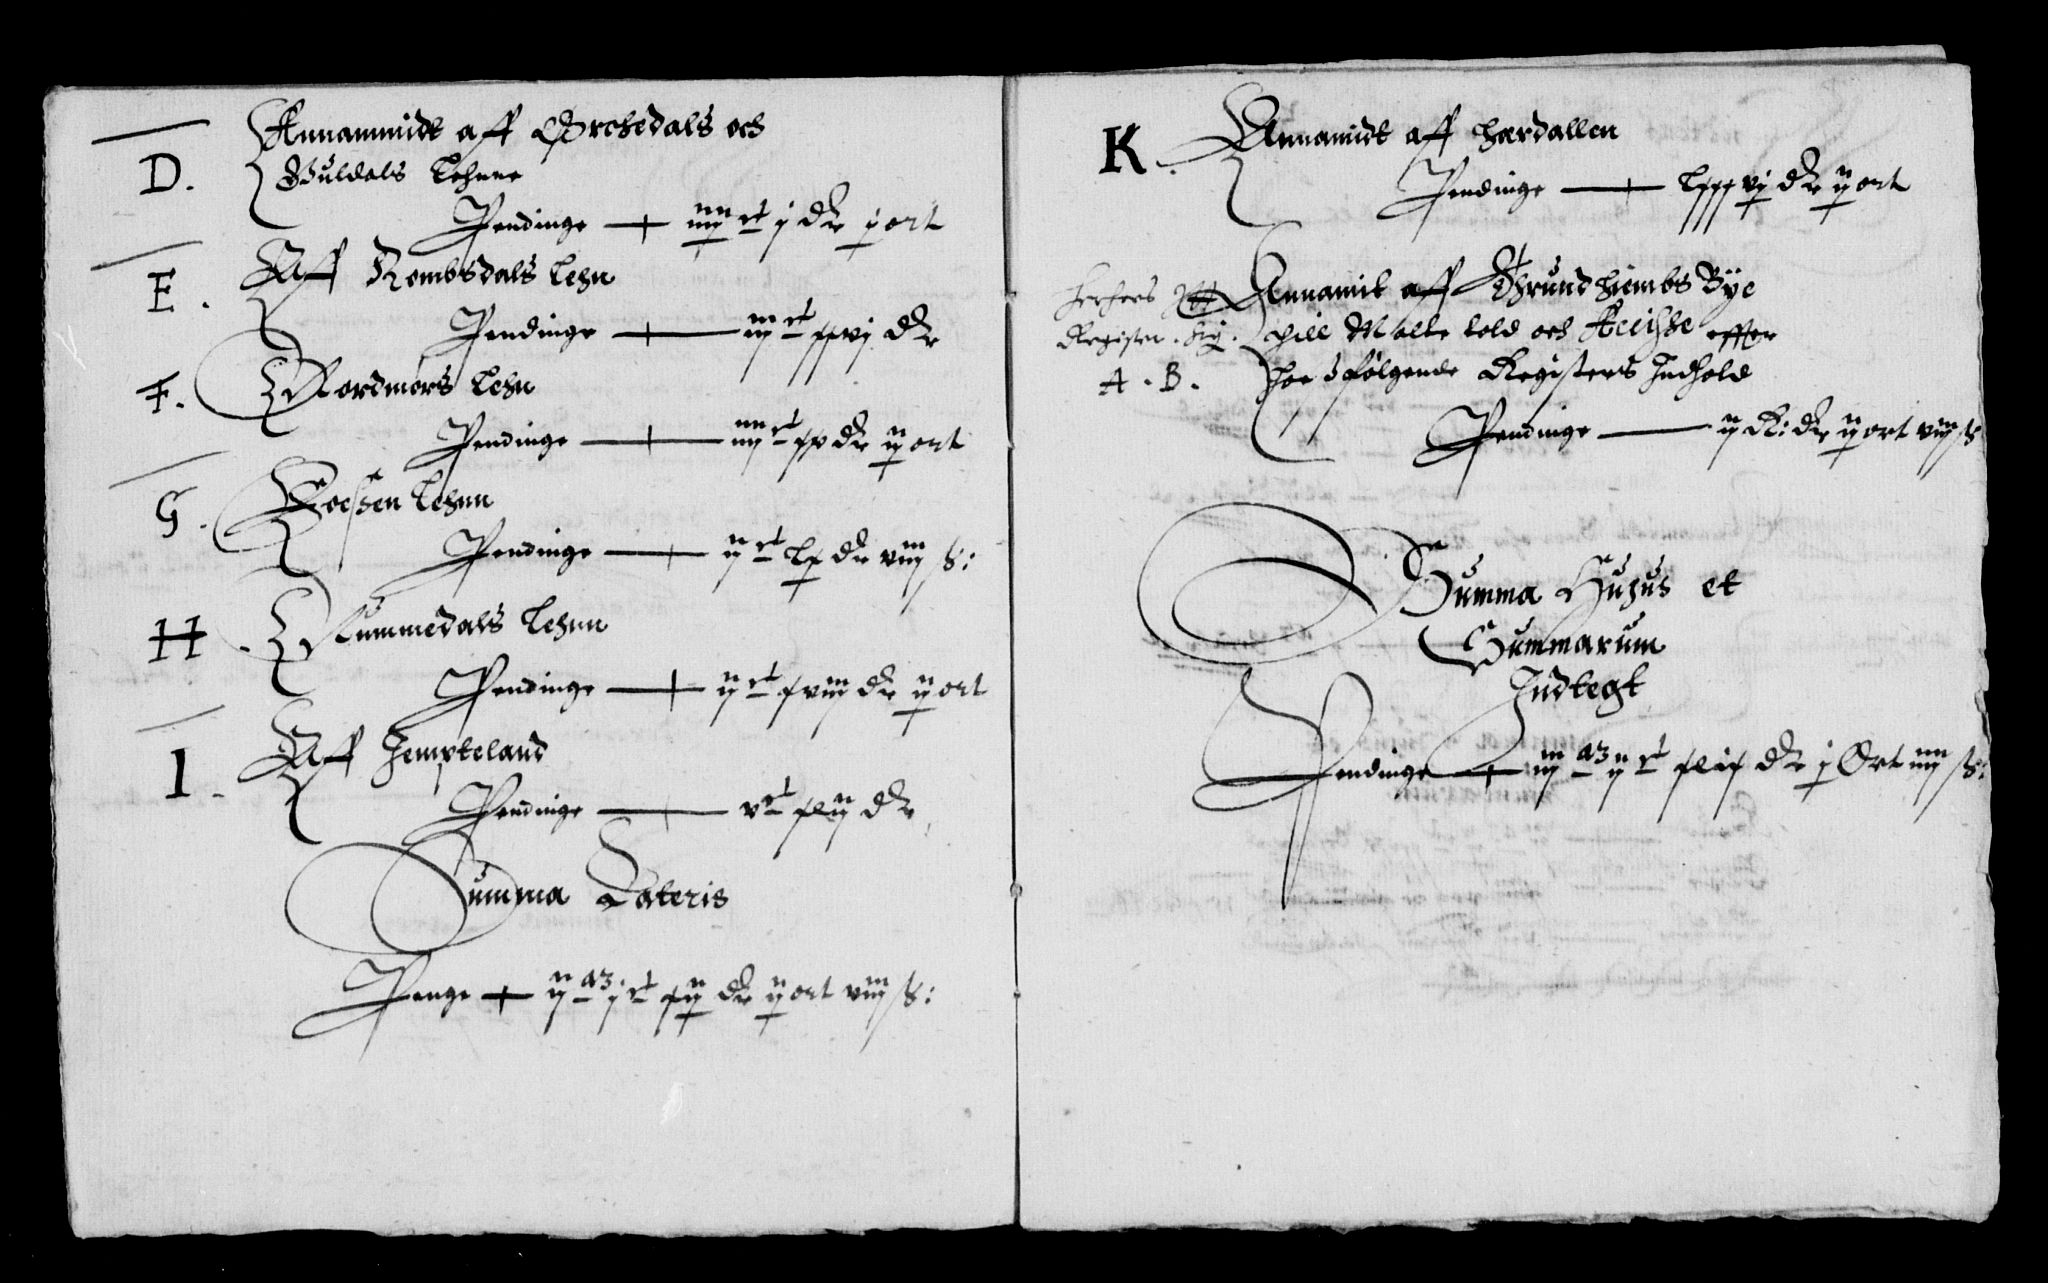 D. Annammidt aff Orchedals och
Guldals Lehnne
Pendinge — iiij c j dr j ort
E. Aff Rombsdals Lehn
Pendinge — iij c xxvj dr
F. Nordmørs Lehn
Pendinge — iiij c xv dr ij ort
G. Foeßen Lehnn
Pendinge — ij c lx dr viij ß:
H. Nummedals Lehnn
Pendinge — ij c xviij dr ij ort
I. Aff Jempteland
Pendinge — v c xlij dr
Summa Lateris
Penge — ij m j c xij dr ij ort viij ß:
K. Annamidt aff Hærdallen
Pendinge — lxxxvj dr ij ort
Annamit aff Thrundhiembs Bÿe
Register
till Malte told och Acciße effter
A. B.
hoesfølgende Registers Indhold
Pendinge — ij dr ij ort viij ß
Summa Hujus et
Summarum
Indtegt
Pendinge — iij m ij c xlix dr j Ort iiij ß: